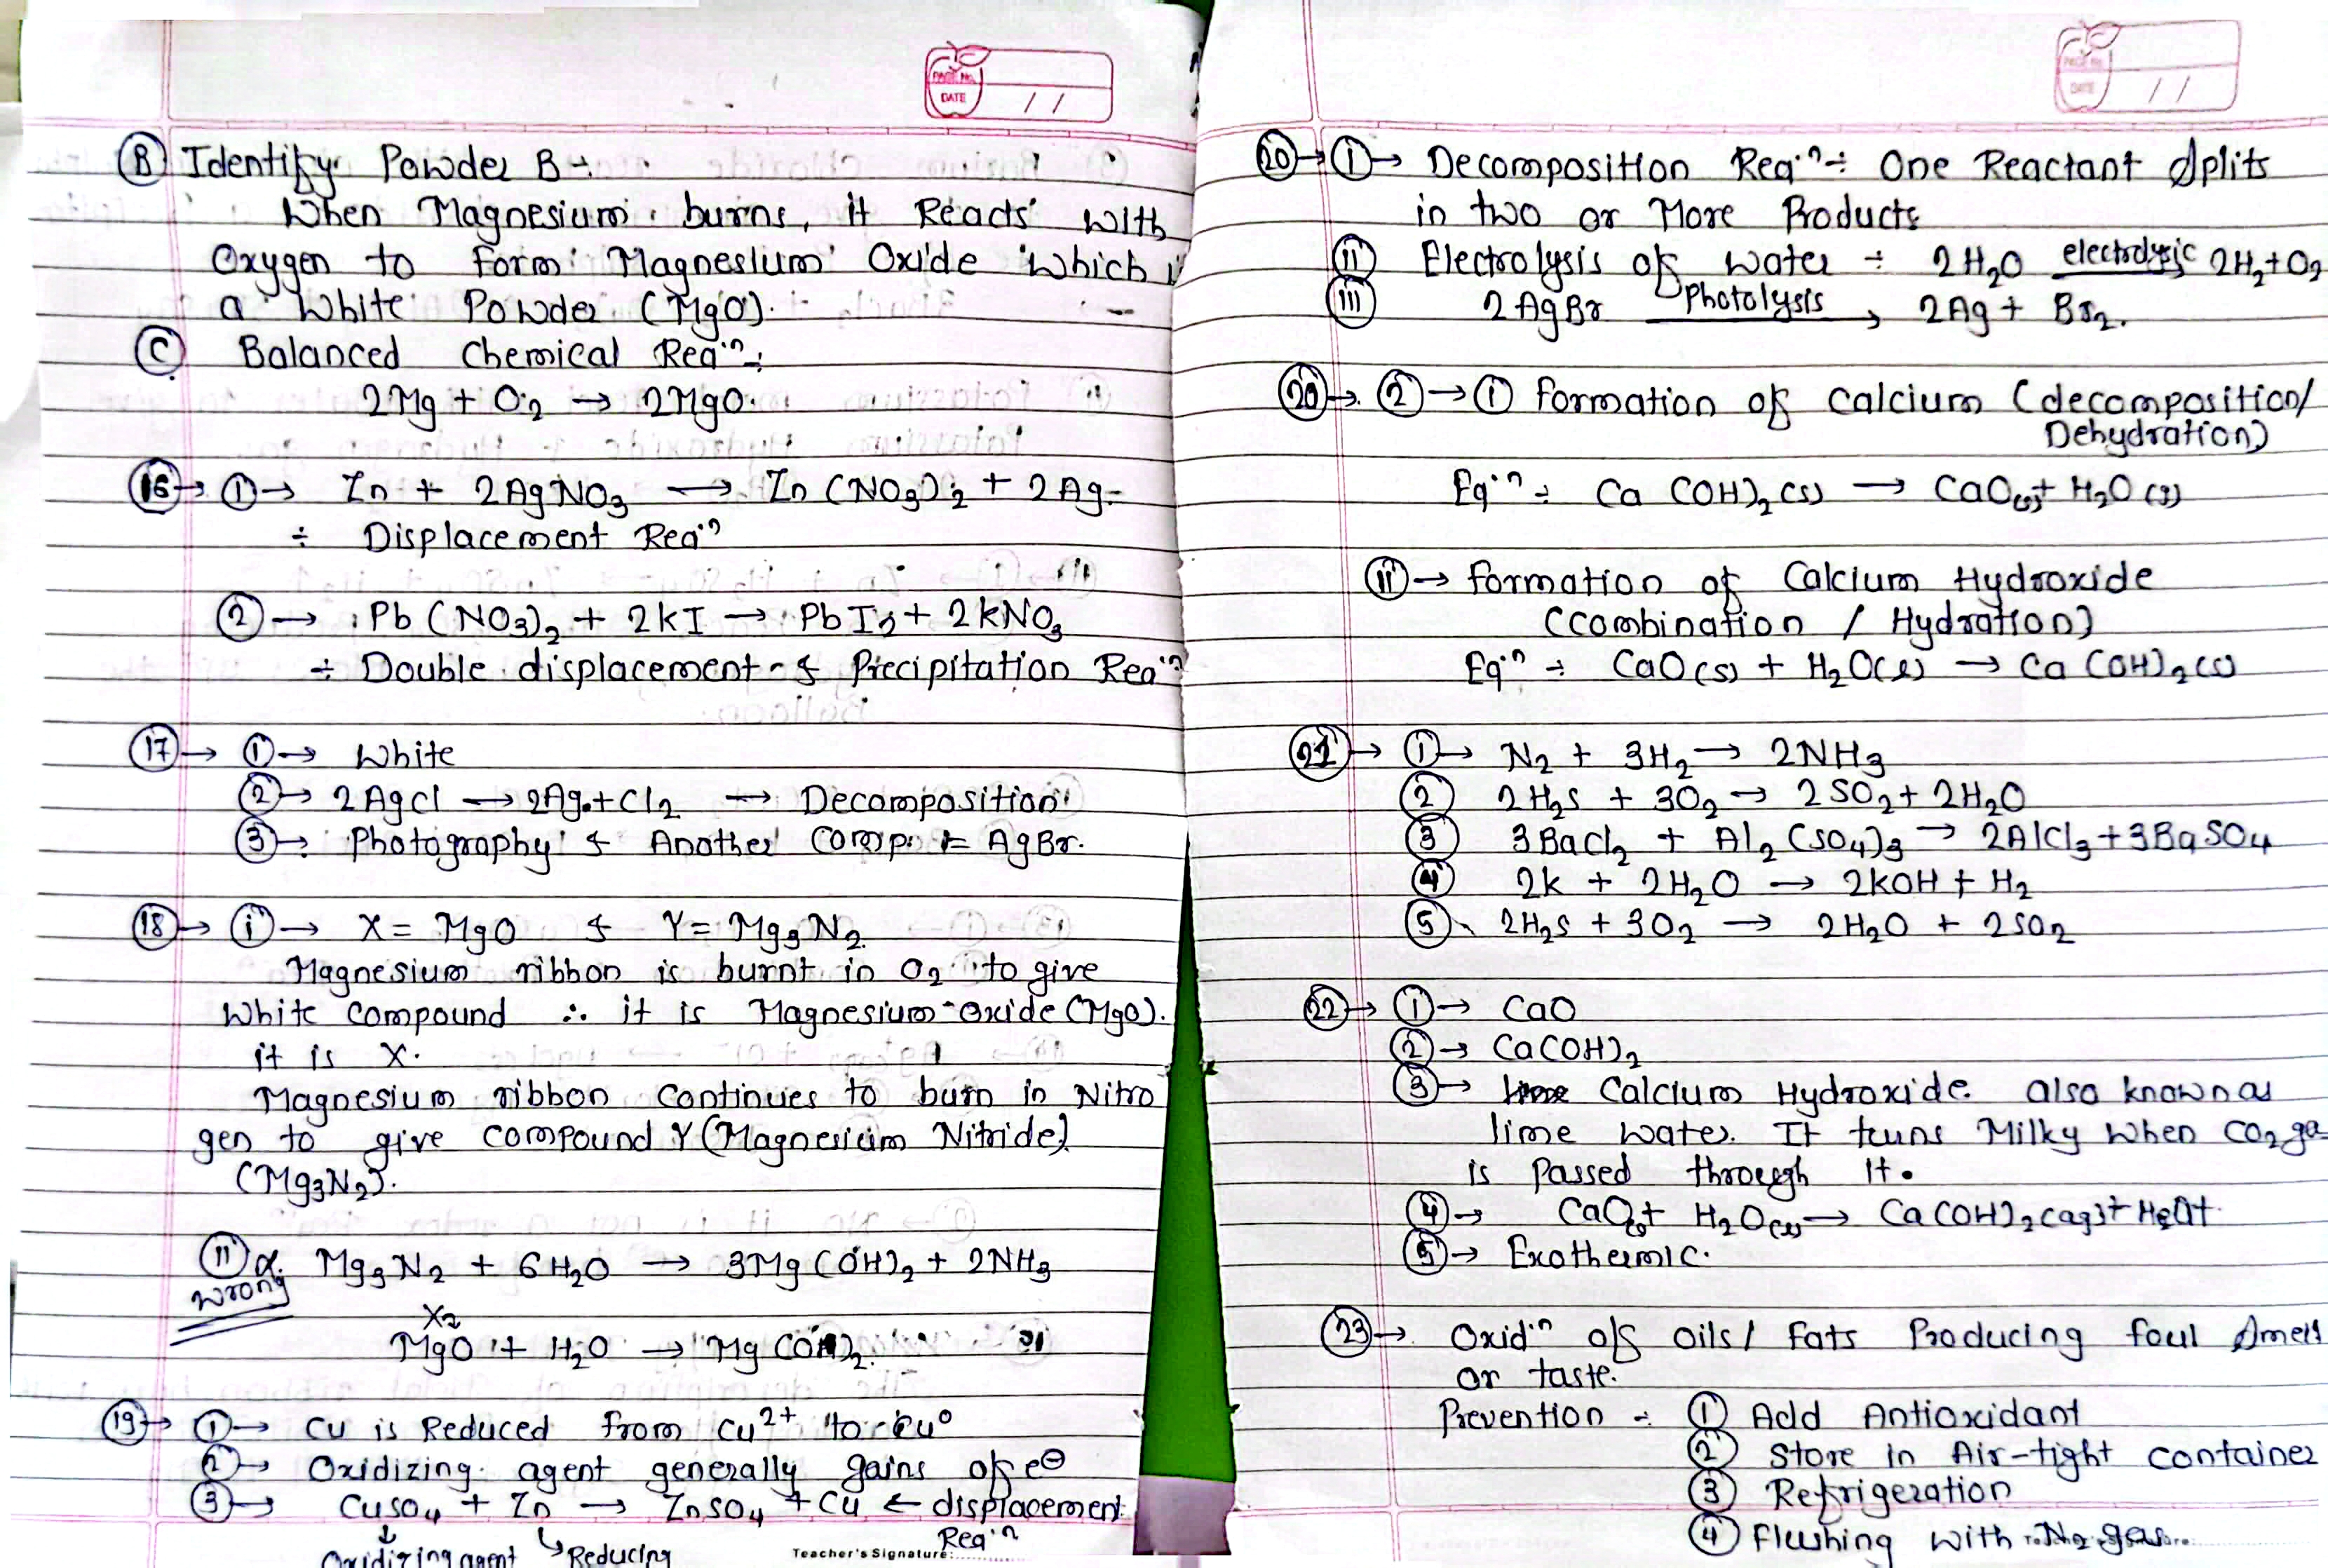 PAGE No.
DATE / /
(B) Identify Powder B :-
When Magnesium burns, it Reacts with
Oxygen to form Magnesium Oxide which i
a White Powder (MgO).
(C) Balanced Chemical Reaⁿ :
2Mg + O2 → 2MgO
(16)→ (1)→ Zn + 2AgNO3 → Zn(NO3)2 + 2Ag
÷ Displacement Reaⁿ
(2)→ Pb(NO3)2 + 2KI → PbI2 + 2KNO3
÷ Double displacement & Precipitation Reaⁿ
(17)→ (1)→ White
(2)→ 2AgCl → 2Ag + Cl2 → Decomposition
(3)→ Photography & Another Comp. = AgBr.
(18)→ (i)→ X = MgO & Y = Mg3N2
Magnesium ribbon is burnt in O2 to give
White compound ∴ it is Magnesium-Oxide (MgO).
it is X.
Magnesium ribbon Continues to burn in Nitro
gen to give compound Y (Magnesium Nitride)
(Mg3N2).
(11) α. Mg3N2 + 6H2O → 3Mg(OH)2 + 2NH3
wrong
X2
MgO + H2O → Mg(OH)2.
(19)→ (1)→ Cu is Reduced from Cu²⁺ to Cu⁰
(2)→ Oxidizing agent generally gains of e⊖
(3)→ CuSO4 + Zn → ZnSO4 + Cu ← displacement
Reaⁿ
Oxidizing agent Reducing
Teacher's Signature:
PAGE No.
DATE / /
(20)→ (1)→ Decomposition Reaⁿ ÷ One Reactant Splits
in two or More Products
(11) Electrolysis of water ÷ 2H2O electrolysis 2H2+O2
(111) 2AgBr Photolysis → 2Ag + Br2.
(20)→ (2)→ (1) Formation of Calcium (decomposition/
Dehydration)
Eqⁿ ÷ Ca(OH)2(s) → CaO(s) + H2O(g)
(11)→ Formation of Calcium Hydroxide
(Combination / Hydration)
Eqⁿ ÷ CaO(s) + H2O(l) → Ca(OH)2(s)
(21)→ (1)→ N2 + 3H2 → 2NH3
(2) 2H2S + 3O2 → 2SO2 + 2H2O
(3) 3BaCl2 + Al2(SO4)3 → 2AlCl3 + 3BaSO4
(4) 2K + 2H2O → 2KOH + H2
(5) 2H2S + 3O2 → 2H2O + 2SO2
(22)→ (1)→ CaO
(2)→ Ca(OH)2
(3)→ Calcium Hydroxide. also known as
lime water. It turns Milky when CO2 ga
is Passed through it.
(4)→ CaO(s) + H2O(l) → Ca(OH)2(aq) +
(5)→ Exothermic.
(23)→ Oxidⁿ of Oils / Fats Producing foul Smell
or taste.
Prevention ÷ (1) Add Antioxidant
(2) Store in Air-tight container
(3) Refrigeration
(4) Flushing with N2 gas